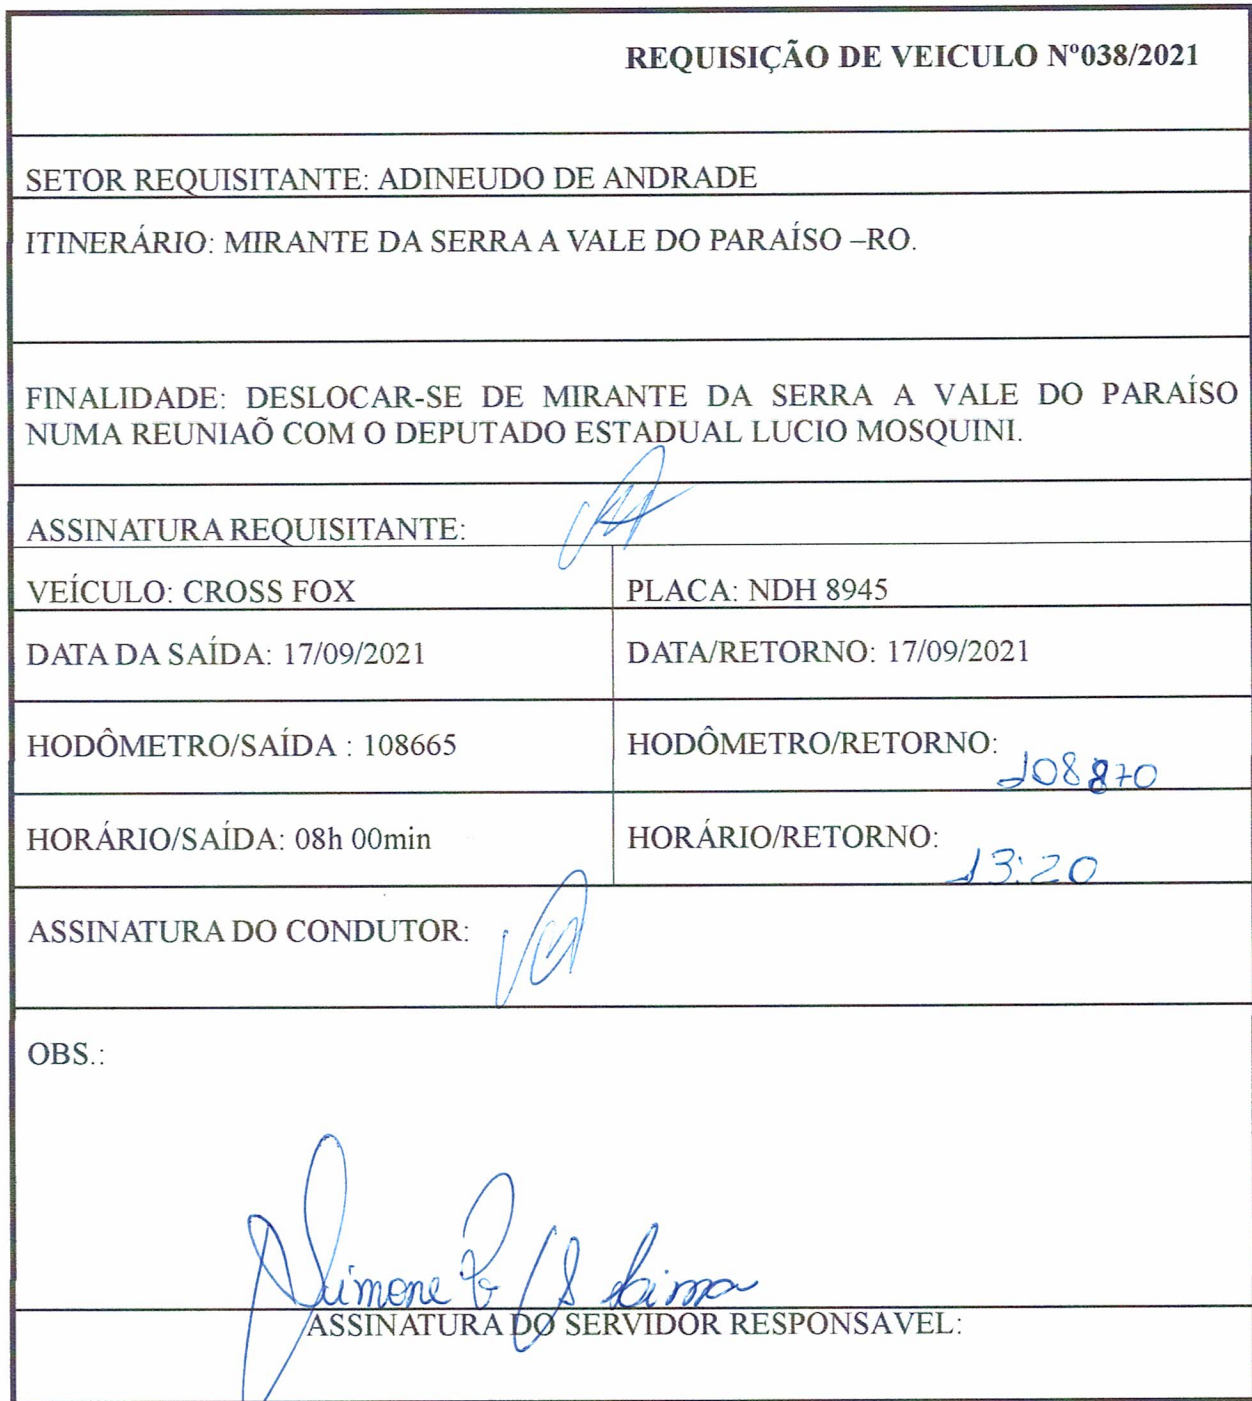 REQUISIÇÃO DE VEICULO Nº038/2021
SETOR REQUISITANTE: ADINEUDO DE ANDRADE
ITINERÁRIO: MIRANTE DA SERRA A VALE DO PARAÍSO –RO.
FINALIDADE: DESLOCAR-SE DE MIRANTE DA SERRA A VALE DO PARAÍSO
NUMA REUNIAÕ COM O DEPUTADO ESTADUAL LUCIO MOSQUINI.
ASSINATURA REQUISITANTE:
VEÍCULO: CROSS FOX
PLACA: NDH 8945
DATA DA SAÍDA: 17/09/2021
DATA/RETORNO: 17/09/2021
HODÔMETRO/SAÍDA : 108665
HODÔMETRO/RETORNO:
108870
HORÁRIO/SAÍDA: 08h 00min
HORÁRIO/RETORNO:
13:20
ASSINATURA DO CONDUTOR:
OBS.:
Simone
ASSINATURA DO SERVIDOR RESPONSAVEL: